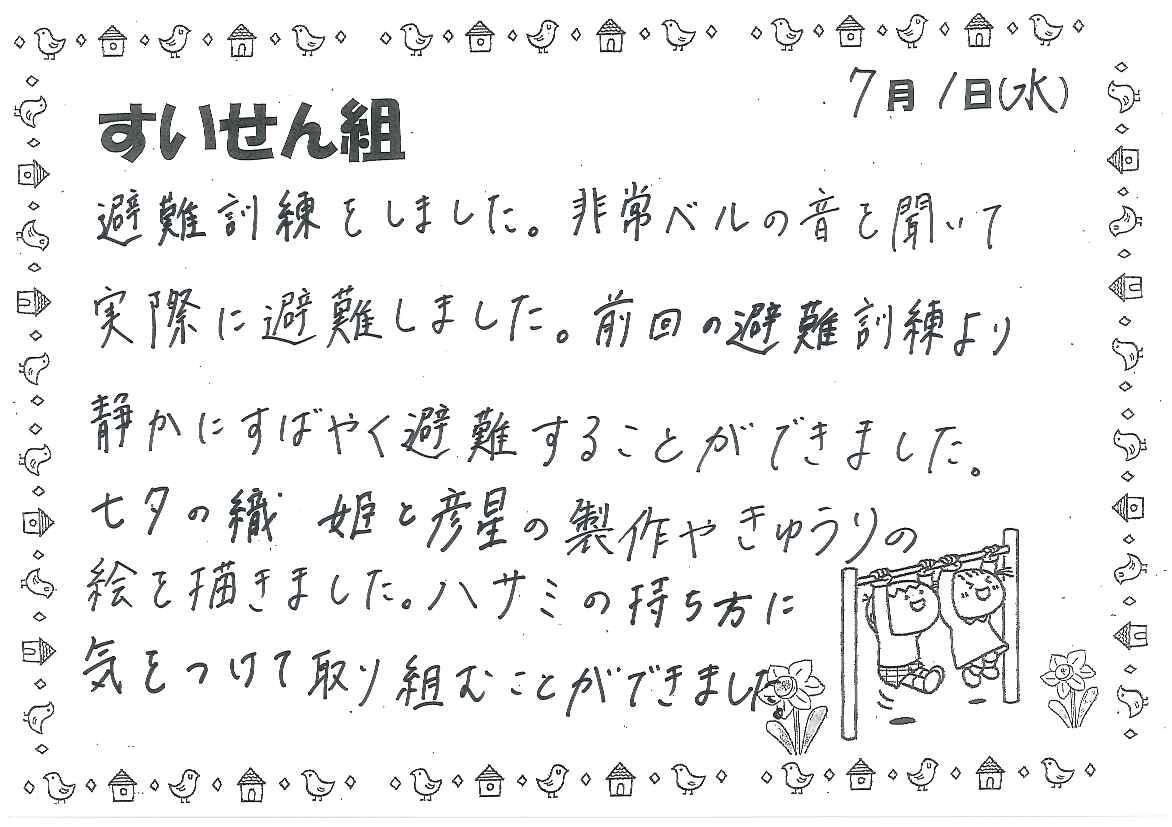 7月1日(水)
すいせん組
避難訓練をしました。非常ベルの音を聞いて
実際に避難しました。前回の避難訓練より
静かにすばやく避難することができました。
七夕の織姫と彦星の製作やきゅうりの
絵を描きました。ハサミの持ち方に
気をつけて取り組むことができました。